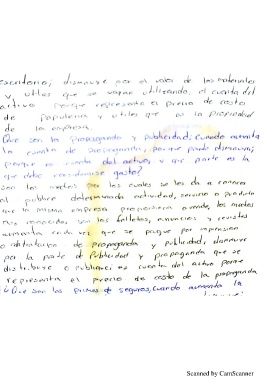 escritorio; disminuye por el valor de los materiales
y utiles que se vayan utilizando, es cuenta del
activo porque representa el precio de costo
de papeleria y utiles que es la propiedad
de la empresa.
Que son la propaganda y publicidad; Cuando aumenta
la cuenta de propaganda, por que puede disminuir;
porque es cuenta del activo, y que parte es la
que debe considerarse gasto?
son los medios por los cuales se les da a conocer
al publico determinada actividad, servicio o producto
que la misma empresa proporciona o vende, los medios
mas conocidos son los folletos, anuncios y
aumenta cada vez que se pague por impresion
o de propaganda y publicidad, disminuye
por la parte de Publicidad y propaganda que se
distribuye o publique; es cuenta del activo porque
representa el precio de costo de la propaganda
Que son las primas de seguros, Cuando aumenta la
Scanned by CamScanner